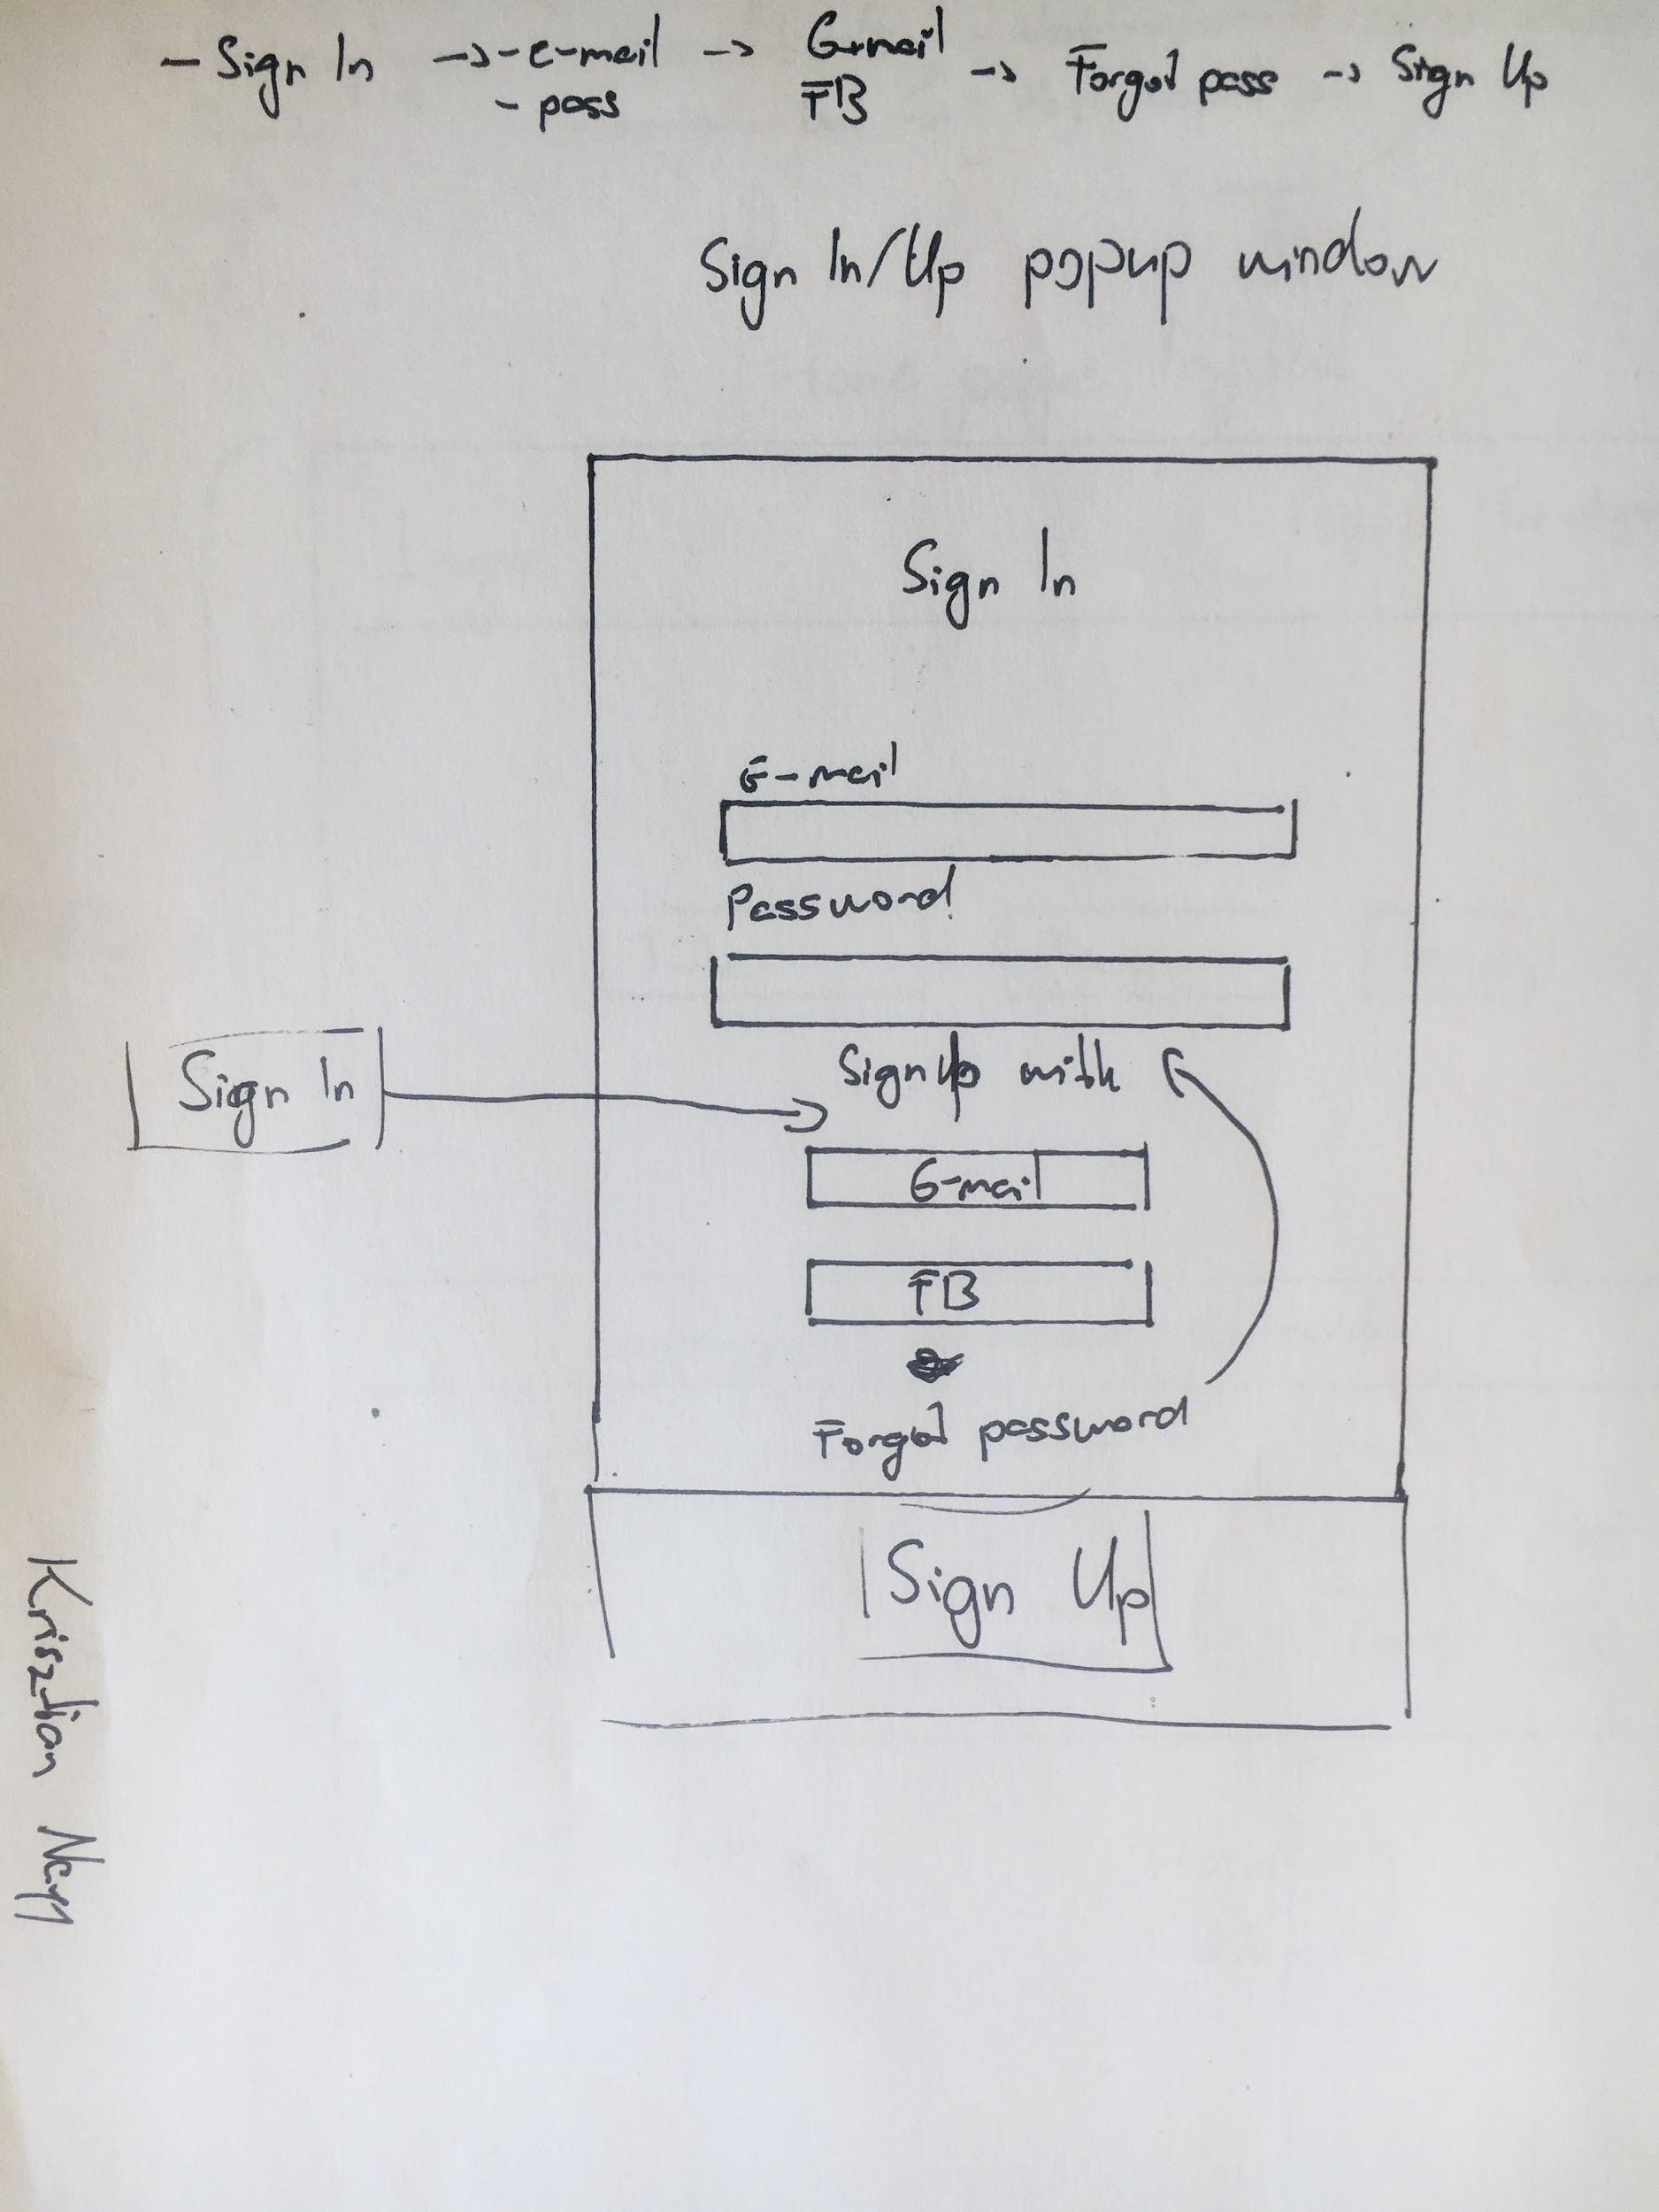 - Sign In -> - e-mail -> G-mail -> Forgot pass -> Sign Up
- pass FB
Sign In/Up popup window
Sign In
E-mail
Password
Sign Up with
Sign In
G-mail
FB
Forgot password
Sign Up
Krisztian Nagy